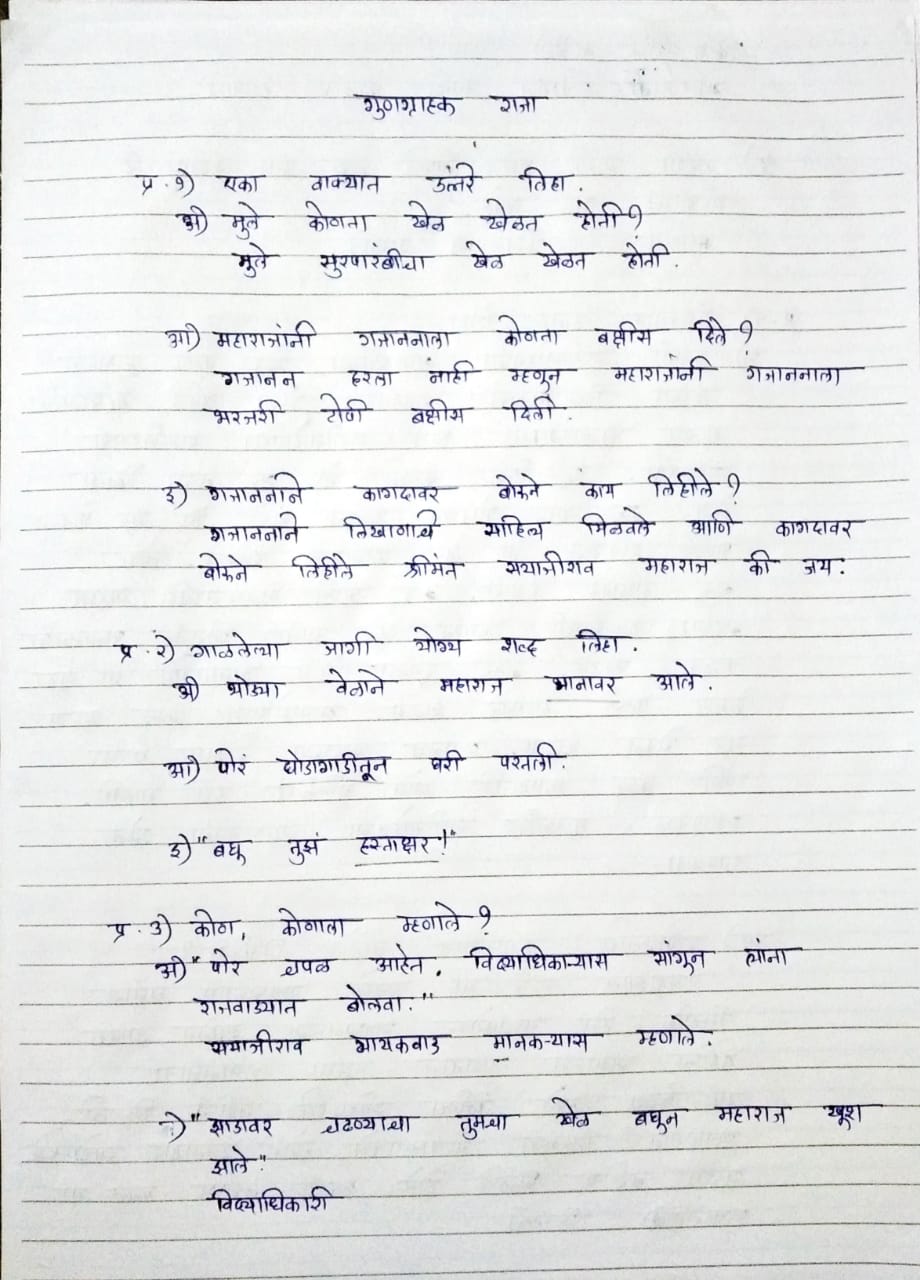 गुणग्राहक राजा
प्र.१) एका वाक्यात उत्तरे लिहा.
अ) मुले कोणता खेळ खेळत होती?
मुले सुरपारंबीचा खेळ खेळत होती.
आ) महाराजांनी गजाननाला कोणता बक्षीस दिले?
गजानन हरला नाही म्हणुन महाराजांनी गजाननाला
भरजरी टोपी बक्षीस दिली.
इ) गजाननाने कागदावर बोरूने काय लिहीले?
गजाननाने लिखाणाचे साहित्य मिळवले आणि कागदावर
बोरूने लिहीले श्रीमंत सयाजीराव महाराज की जय.
प्र.२) गाळलेल्या जागी योग्य शब्द लिहा.
अ) थोड्या वेळाने महाराज भानावर आले.
आ) पोरं घोडागाडीतून घरी परतली.
इ) "बघू तुझं हस्ताक्षर!"
प्र.३) कोण, कोणाला म्हणाले?
अ) "पोर चपळ आहेत. विद्याधिकाऱ्यास सांगुन त्यांना
राजवाड्यात बोलवा."
सयाजीराव गायकवाड मानकऱ्यास म्हणाले.
"झाडावर चढण्याचा तुमचा खेळ बघून महाराज खूश
आले."
विद्याधिकारी